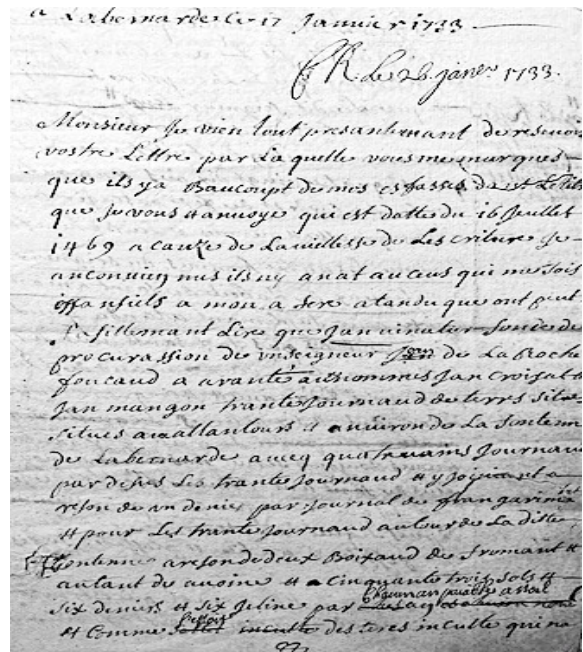 a Labernarde le 17 Janvier 1733
R. le 26 janer. 1733.
Monsieur Je vien tout presantemant de resevoir
vostre Lettre par La quelle vous me marques
que ils ya Baucoupt de mos esfassés da Le titre
que Je vous et anvoye qui est datte du 16 Jeullet
1469 a cauze de La viellesse de Les criture Je
anconvien mis ils ny anat aucus qui me sois
offansifs a mon a fere atandu que ont peut
fasillemant Lire que Jan vinatur fonde de
procurassion de vnseigneur Jean de La Roche
foucaud a aranté aus nommes Jan Croisat et
Jan mangon trante Journaud de terres situes
situes au allantours et anviron de La fontenne
de Labernarde avecq quatre vains Journaud
par desus Les trante Journaud et y Joignant a
reson de vn denier par Journal de
et pour Les trante Journaud autour de La ditte
fontenne a reson de deux Boixaud de fromant et
autant de avoine et a Cinquante trois sols et
six deniers et six Jeline par
et Comme inculte des teres inculte qui na